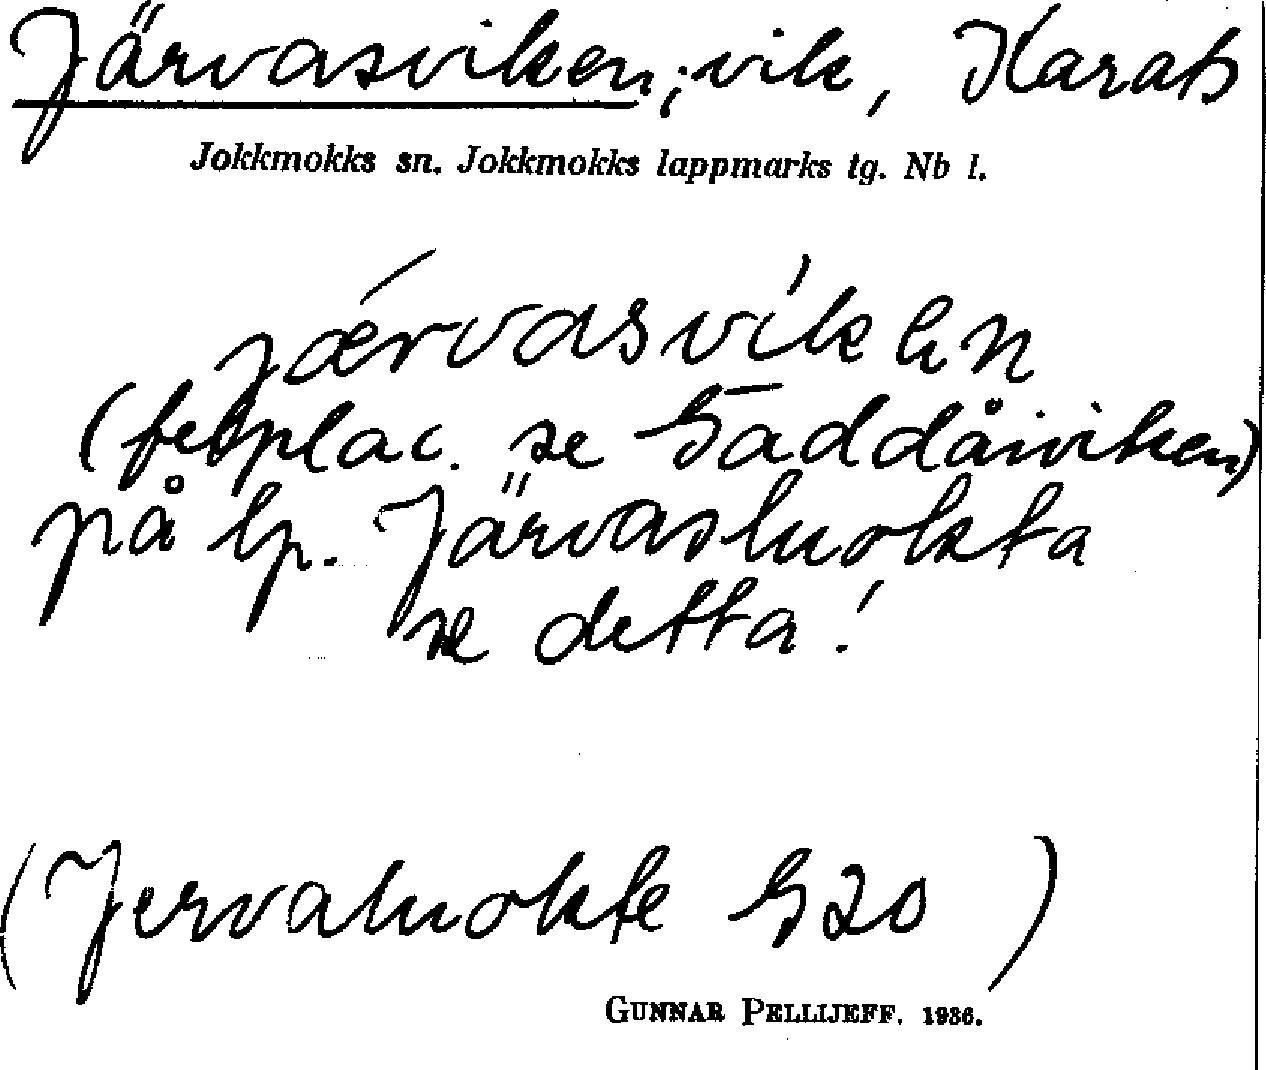 Järvasviken; vik, Karats
Jokkmokks sn. Jokkmokks lappmarks tg. Nb l.
járvasviken
(felplac. se Gaddåiviken)
på lp. Järvasluokta
se detta!
(Jervaluokte G20)
GUNNAR PELLIJEFF. 1936.